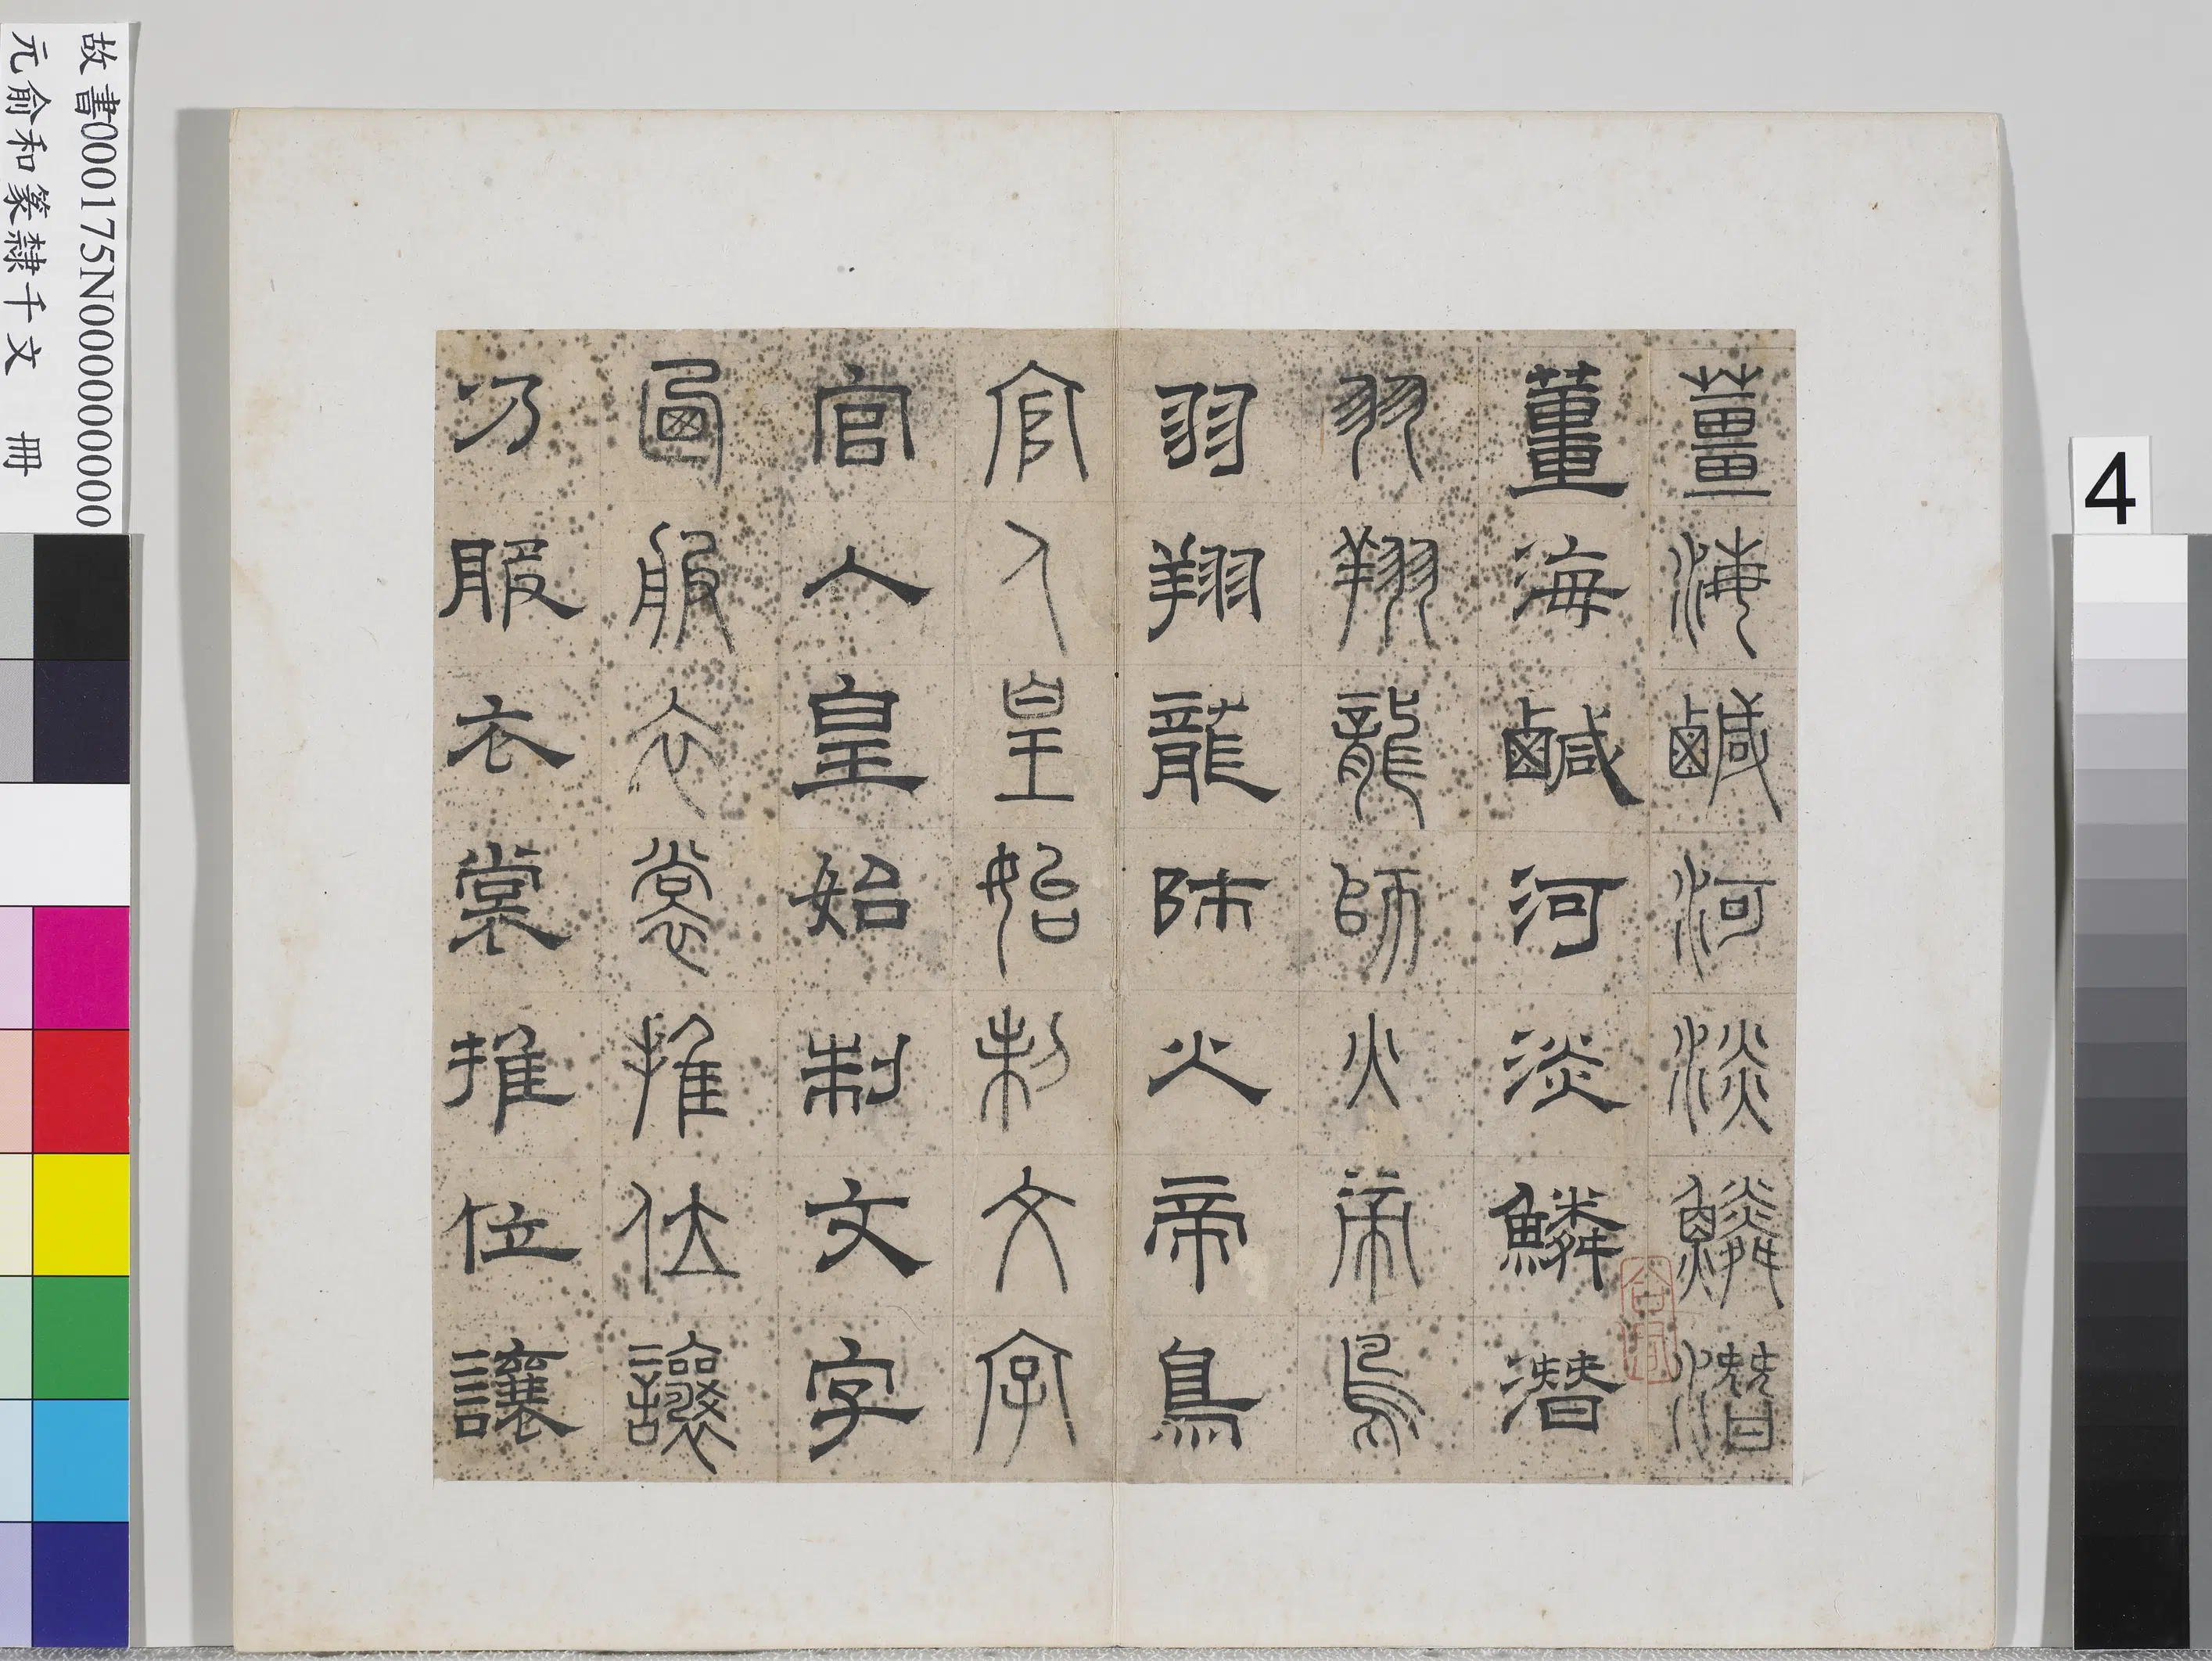 薑海鹹河淡鱗潛
薑海鹹河淡鱗潛
羽翔龍師火帝鳥
羽翔龍師火帝鳥
官人皇始制文字
官人皇始制文字
乃服衣裳推位讓
乃服衣裳推位讓
故書000175N000000000
元俞和篆隸千文 冊
4